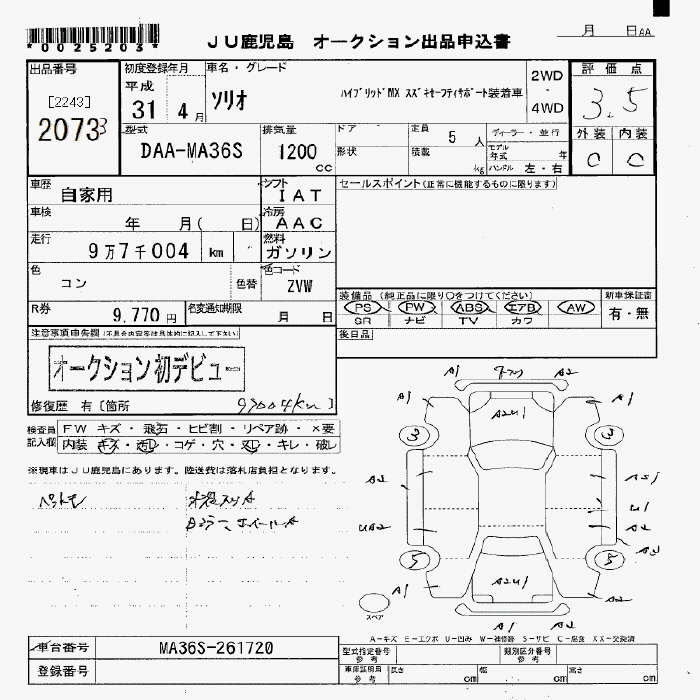 *0025203*
JU鹿児島 オークション出品申込書
月 日AA
出品番号
[2243]
2073
3
初度登録年月
平成
31 4月
車名・グレード
ソリオ
ハイブリッドMX スズキセーフティサポート装着車
2WD
・
4WD
評価点
3.5
外装 内装
C C
型式
DAA-MA36S
排気量
1200
cc
ドア
形状
定員 5 人
積載 kg
ディーラー・並行
モデル年式 年
ハンドル 左・右
車歴
自家用
シフト
IAT
車検
年 月( 日)
冷房
AAC
走行
9万7千004 km
燃料
ガソリン
色
コン
色替
色コード
ZVW
R券
9,770円
色変通知期限
月 日
セールスポイント(正常に機能するものに限ります)
装備品 (純正品に限り○をつけてください)
PS PW ABS エアB AW
SR ナビ TV カワ
新車保証書
有・無
後日品
注意事項申告欄(不具合内容等は具体的に記入して下さい)
オークション初デビュー
修復歴 有[箇所
97004km]
検査員
記入欄
FW キズ・飛石・ヒビ割・リペア跡・×要
内装 キズ・汚レ・コゲ・穴・スレ・キレ・破レ
※現車はJU鹿児島にあります。陸送費は落札店負担となります。
A1 A2
A1 A2U1 A2
3 3
A2
U1
UA2 A2
A2
5 5
A1 A2U1 UA2
スペア
A1 A2
A-キズ E-エクボ U-凹み W-補修跡 S-サビ C-腐食 XX-交換済
車台番号
MA36S-261720
登録番号
型式指定番号
参考
類別区分番号
参考
車庫証明用
参考
長さ cm 幅 cm 高さ cm